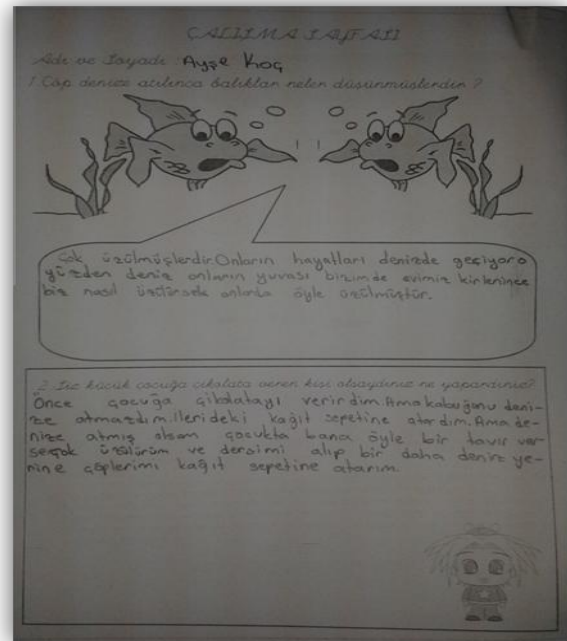 ÇALIŞMA SAYFASI
Adı ve Soyadı: Ayşe Koç
1. Çöp denize atılınca balıklar neler düşünmüşlerdir?
Çok üzülmüşlerdir.Onların hayatları denizde geçiyor o
yüzden deniz onların yuvası bizimde evimiz kirlenince
biz nasıl üzülürsek onlarda öyle üzülmüştür.
2. Siz küçük çocuğa çikolata veren kişi olsaydınız ne yapardınız?
Önce çocuğa çikolatayı verirdim.Ama kabuğunu deni-
ze atmazdım.İlerideki kağıt sepetine atardım.Ama de-
nize atmış olsam çocukta bana öyle bir tavır ver
se çok üzülürüm ve dersimi alıp bir daha denize ye-
rine çöplerimi kağıt sepetine atarım.